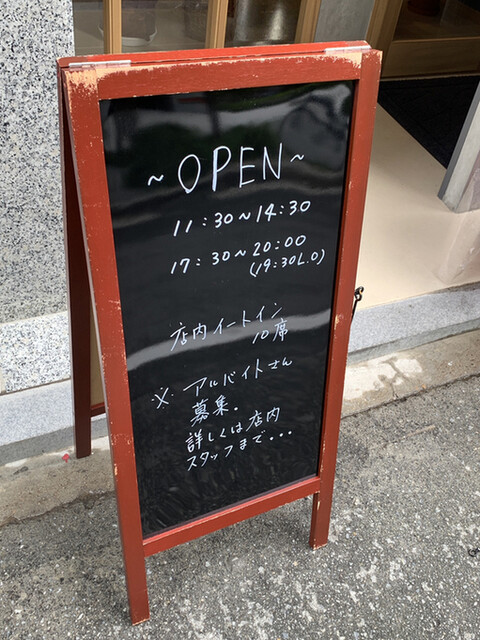 ~OPEN~
11:30~14:30
17:30~20:00
(19:30L.O)
店内イートイン
10席
※アルバイトさん
募集。
詳しくは店内
スタッフまで...